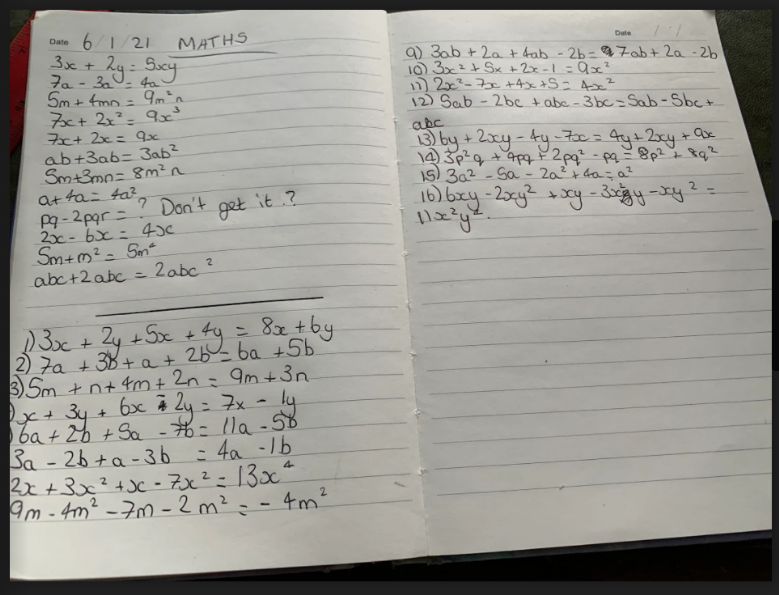 Date 6/1/21 MATHS
3x + 2y = 5xy
7a - 3a = 4a
5m + 4mn = 9m²n
7x + 2x² = 9x³
7x + 2x = 9x
ab + 3ab = 3ab²
5m + 3mn = 8m²n
a + 4a = 4a²
pq - 2pqr = ? Don't get it.?
2x - 6x = 4x
5m + m² = 5m²
abc + 2abc = 2abc²
1) 3x + 2y + 5x + 4y = 8x + 6y
2) 7a + 3b + a + 2b = 6a + 5b
3) 5m + n + 4m + 2n = 9m + 3n
) x + 3y + 6x - 2y = 7x - 1y
) 6a + 2b + 5a - 7b = 11a - 5b
3a - 2b + a - 3b = 4a - 1b
2x + 3x² + x - 7x² = 13x⁴
9m - 4m² - 7m - 2m² = - 4m²
Date / /
9) 3ab + 2a + 4ab - 2b = 7ab + 2a - 2b
10) 3x² + 5x + 2x - 1 = 9x²
11) 2x² - 7x + 4x + 5 = 4x²
12) 5ab - 2bc + abc - 3bc = 5ab - 5bc +
abc
13) 6y + 2xy - 4y - 7x = 4y + 2xy + 9x
14) 3p²q + 4pq + 2pq² - pq = 8p² + 8q²
15) 3a² - 5a - 2a² + 4a = a²
16) 6xy - 2xy² + xy - 3x²y - xy² =
11x²y².